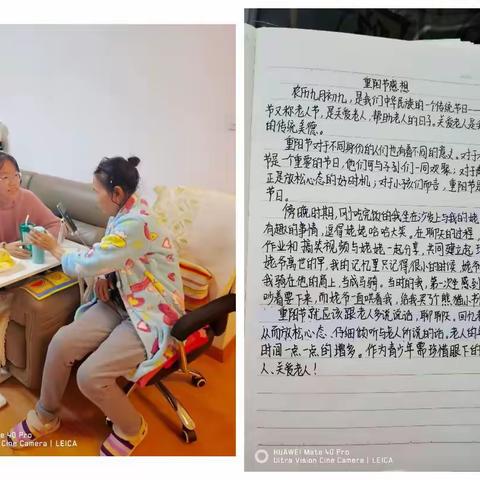 te 40 Pro
n Cine Camera | LEICA
重阳节感想
农历九月初九，是我们中华民族的一个传统节日——
节又称老人节，是关爱老人，帮助老人的日子。关爱老人是
的传统美德。
重阳节对于不同身份的人们也有着不同的意义。对于
节是一个重要的节日，他们可与子女们一同欢聚；对于
正是放松心态的好时机；对于小孩们而言，重阳节
节日。
傍晚时期，刚吃完饭的我坐在沙发上与我的姥
有趣的事情，逗得姥姥哈哈大笑，在聊天的过程，
作业和搞笑视频与姥姥一起分享，共同建立起
姥爷离世的早，我的记忆里只记得很小的时候，姥爷
我骑在他的肩上，当成马骑，当时的我，第一次感到
吵着要下来，而姥爷一直哄着我，给我买了竹熊
重阳节就应该跟老人多说说话，聊聊天，回
从而放松心态、仔细聆听与老人所说的话，老人的
时间一点一点的增多。作为青少年需珍惜眼下的
人、关爱老人！
HUAWEI Mate 40 Pro
Ultra Vision Cine Camera | LEICA